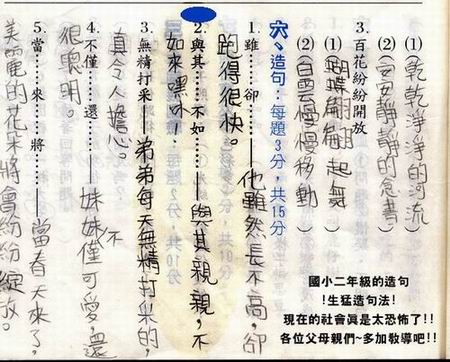 (1)(乾乾淨淨的河流)
(2)(安安靜靜的念書)
3.百花紛紛開放
(1)(蝴蝶翩翩起舞)
(2)(白雲慢慢移動)
六、造句：每題3分，共15分
1.雖……卻……他雖然長不高，卻
跑得很快。
2.與其……不如……與其親親，不
如來嘿咻！
3.無精打采……弟弟每天無精打采的，
真令人擔心。
4.不僅……還……妹妹不僅可愛，還
很聰明。
5.當……來……將……當春天來了，
美麗的花朵將會紛紛綻放。
國小二年級的造句
!生猛造句法!
現在的社會真是太恐怖了!!
各位父母親們~多加教導吧!!